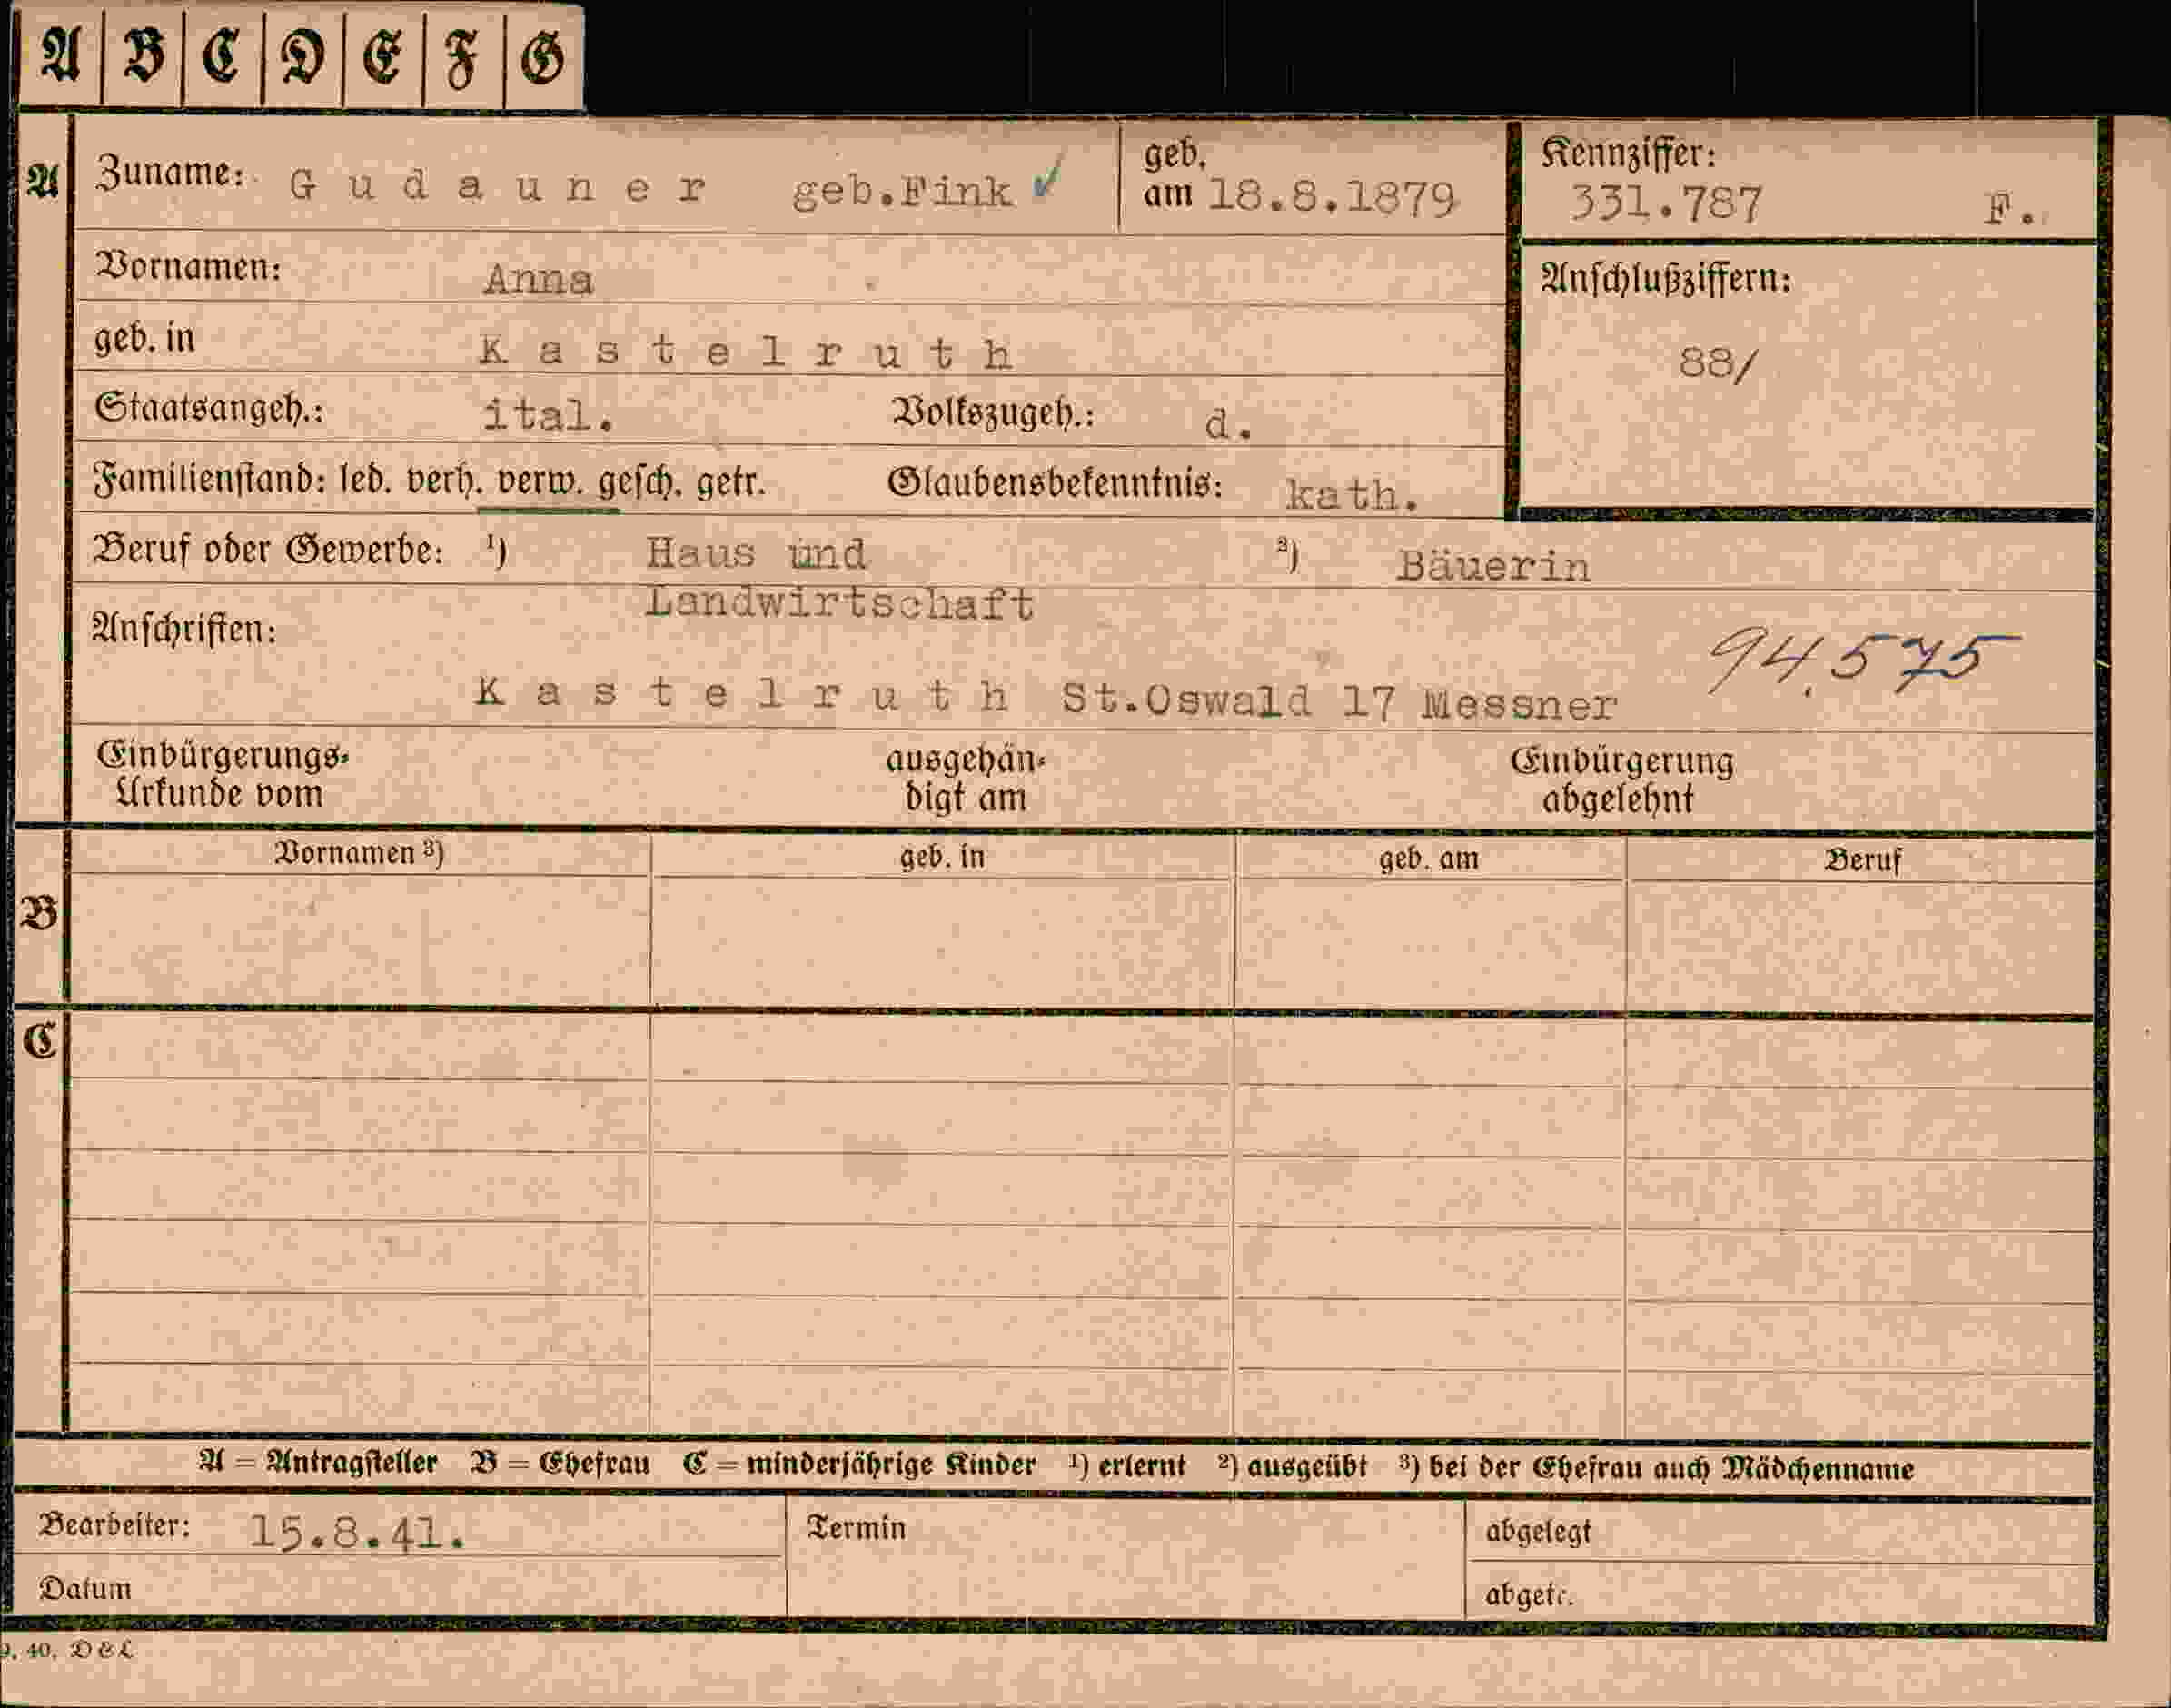 A B C D E F G
A Zuname: Gudauner geb.Fink ✓ geb. am 18.8.1879 Kennziffer: 331.787 F.
Vornamen: Anna Anschlußziffern:
geb. in Kastelruth 88/
Staatsangeh.: ital. Volkszugeh.: d.
Familienstand: led. verh. verw. gesch. getr. Glaubensbekenntnis: kath.
Beruf oder Gewerbe: ¹) Haus und ²) Bäuerin
Landwirtschaft
Anschriften: 94.575
Kastelruth St.Oswald 17 Messner
Einbürgerungs- ausgehän- Einbürgerung
Urkunde vom digt am abgelehnt
Vornamen ³) geb. in geb. am Beruf
B
C
A = Antragsteller B = Ehefrau C = minderjährige Kinder ¹) erlernt ²) ausgeübt ³) bei der Ehefrau auch Mädchenname
Bearbeiter: 15.8.41. Termin abgelegt
Datum abgetr.
40. D & L